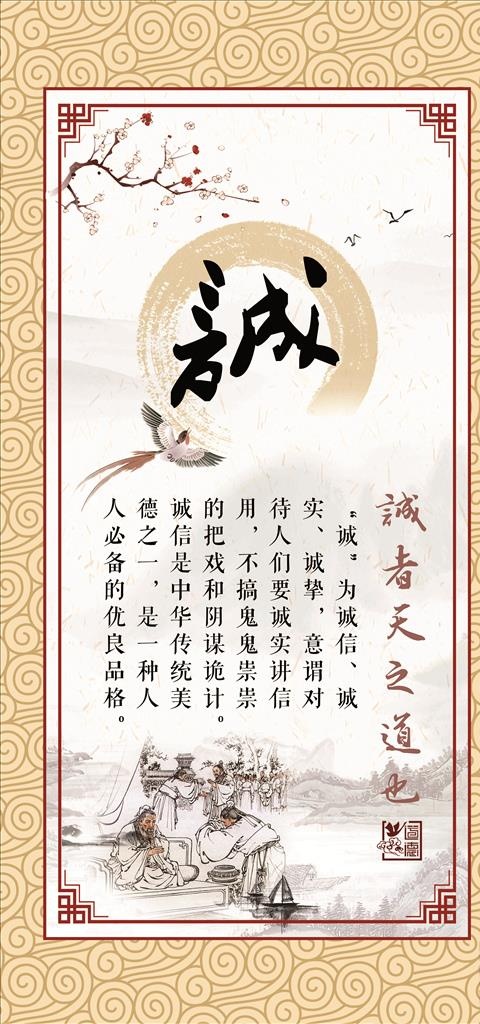 誠
誠者天之道也
“诚”为诚信、诚
实、诚挚，意谓对
待人们要诚实讲信
用，不搞鬼鬼祟祟
的把戏和阴谋诡计。
诚信是中华传统美
德之一，是一种人
人必备的优良品格。